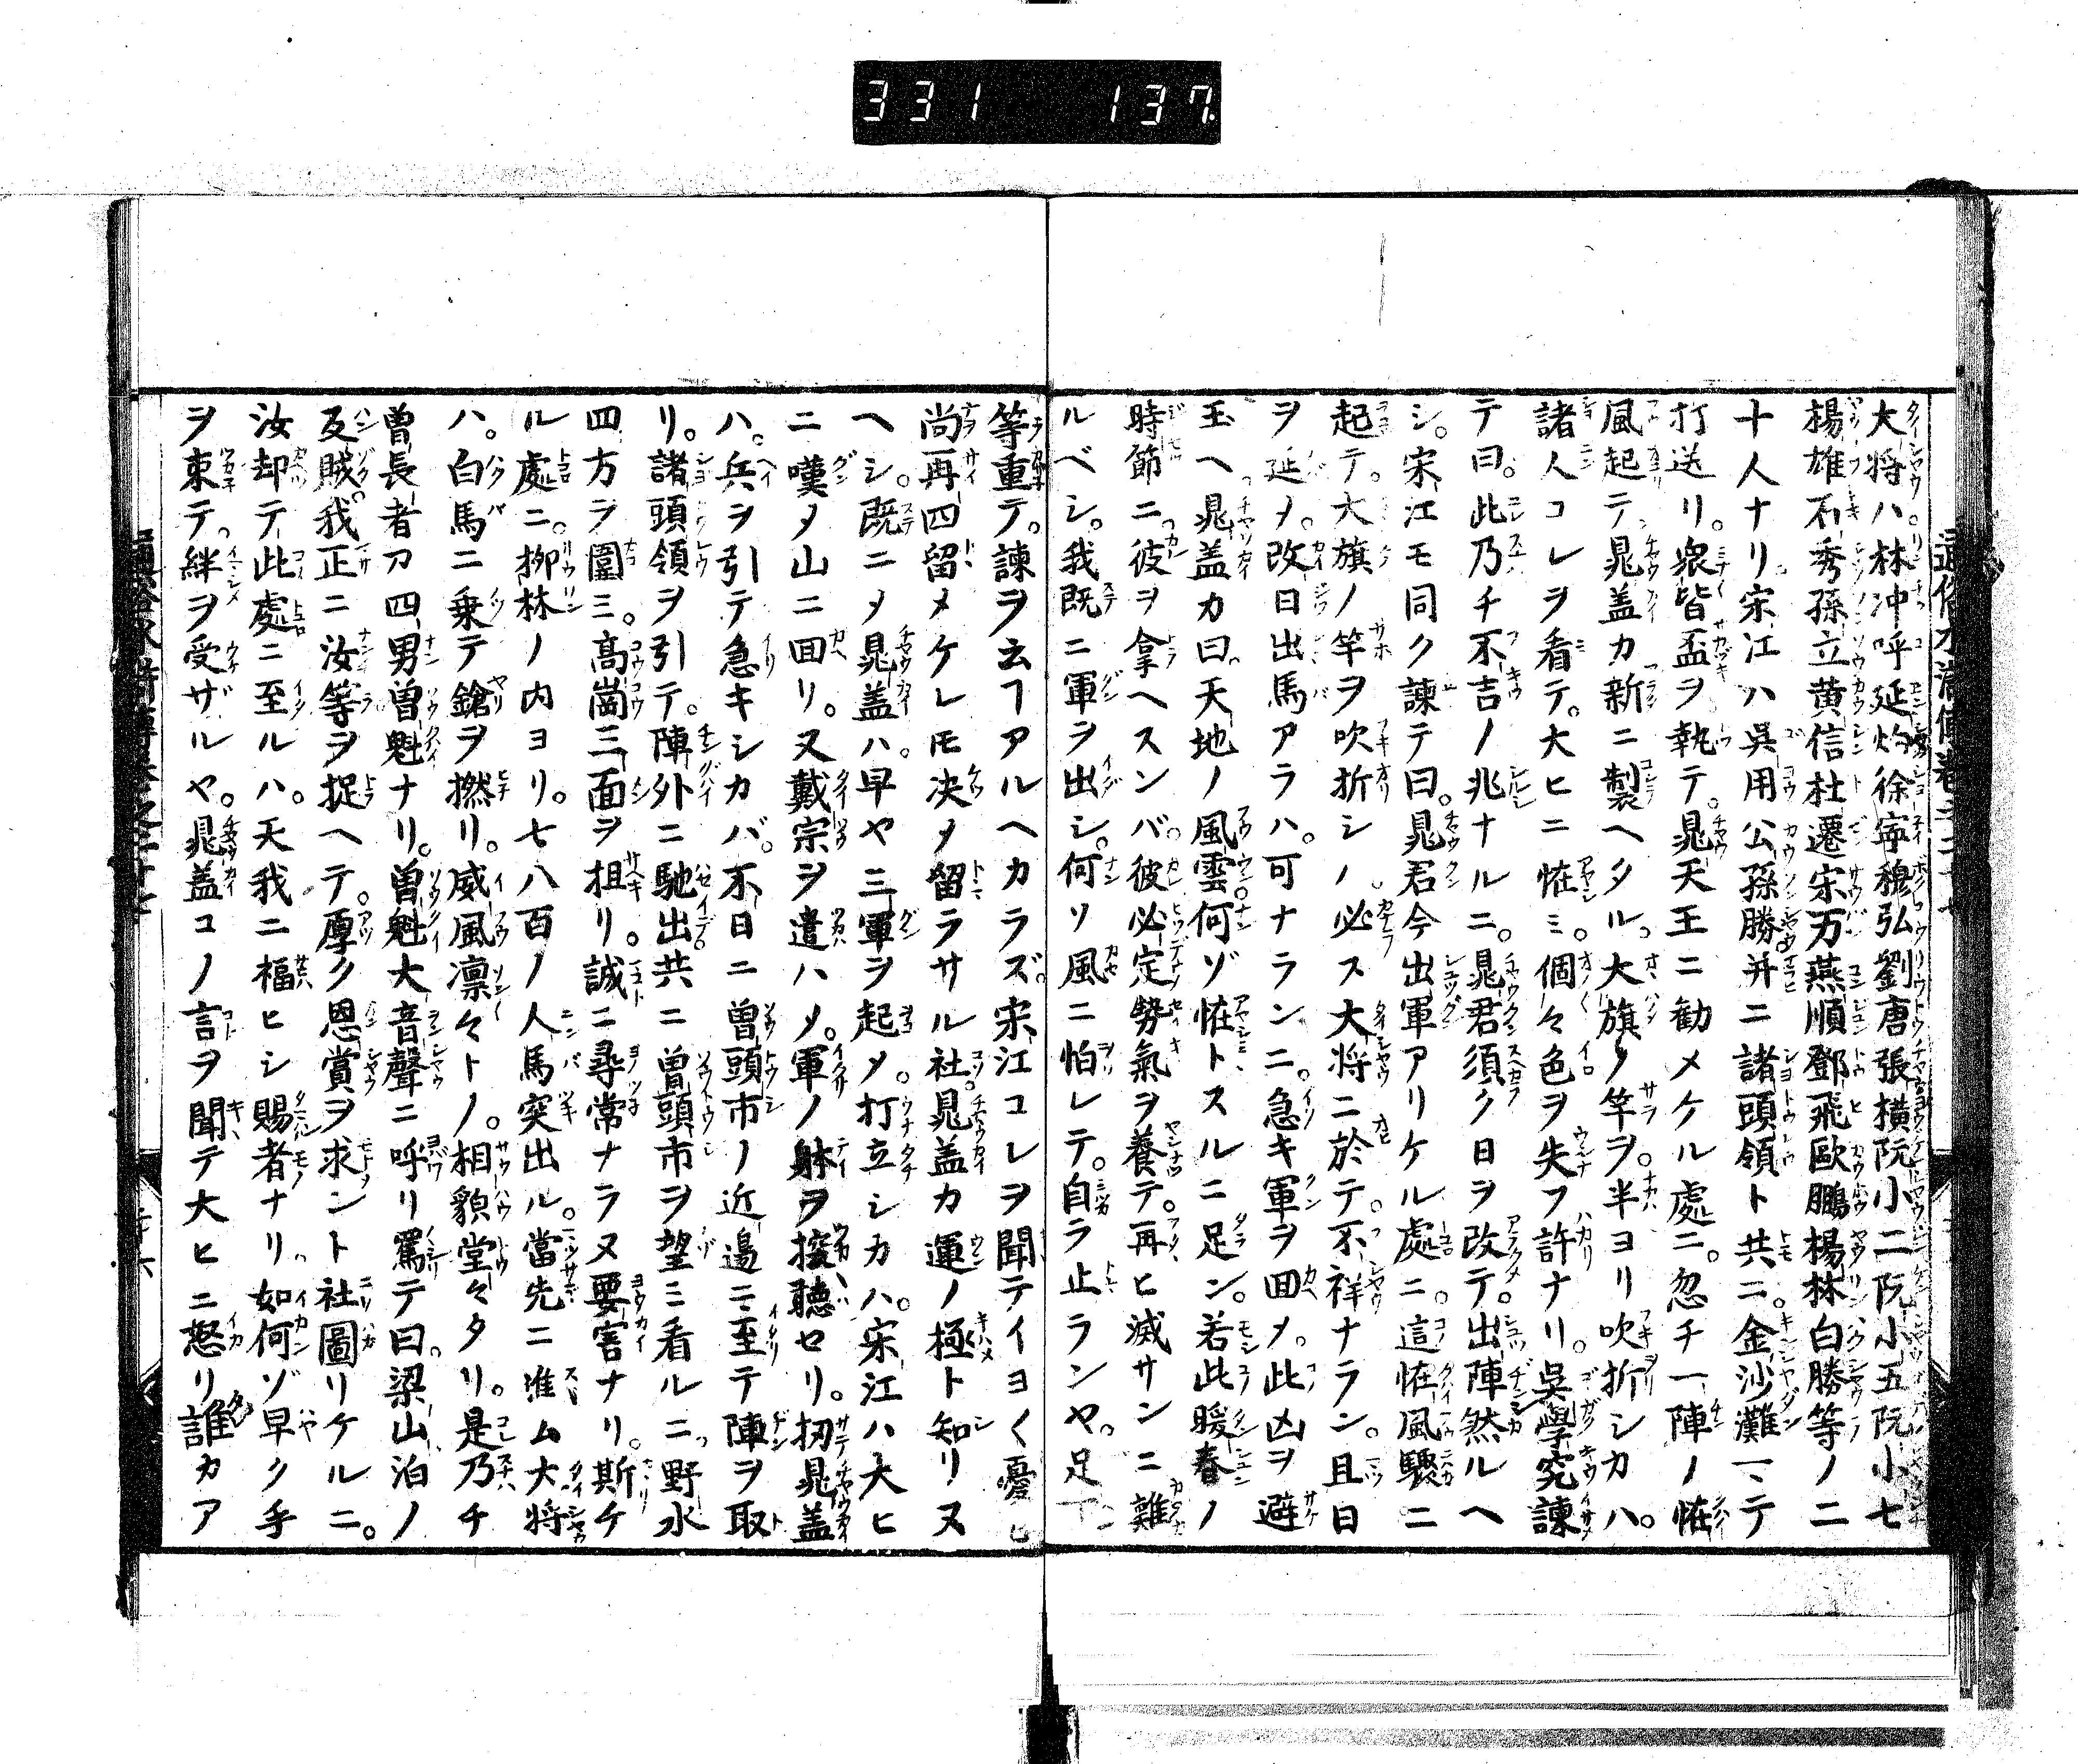 331 137
大将ハ。林冲呼延灼徐寧穆弘劉唐張横阮小二阮小五阮小七
楊雄石秀孫立黄信杜遷宋万燕順鄧飛歐鵬楊林白勝等ノ二
十人ナリ宋江ハ呉用公孫勝并ニ諸頭領ト共ニ。金沙灘ニテ
打送リ。衆皆盃ヲ執テ。晁天王ニ勧メケル處ニ。忽チ一陣ノ恠
風起テ。晁盖カ新ニ製ヘタル。大旗ノ竿ヲ。半ヨリ吹折シカハ。
諸人コレヲ看テ。大ヒニ恠ミ。個々色ヲ失フ許ナリ。呉學究諫
テ曰。此乃チ不吉ノ兆ナルニ。晁君須ク日ヲ改テ。出陣然ルヘ
シ。宋江モ同ク諫テ曰。晁君今出軍アリケル處ニ。這恠風驟ニ
起テ。大旗ノ竿ヲ吹折シノ。必ス大将ニ於テ。不祥ナラン。且日
ヲ延メ。改日出馬アラハ。可ナランニ。急キ軍ヲ回メ。此凶ヲ避
玉ヘ。晁盖カ曰。天地ノ風雲何ゾ恠トスルニ足ン。若此暖春ノ
時節ニ。彼ヲ拿ヘスンバ。彼必定勢氣ヲ養テ。再ヒ滅サンニ難
ルベシ。我既ニ軍ヲ出シ。何ソ風ニ怕レテ。自ラ止ランヤ。足下
等重テ。諫ヲ云フアルヘカラズ。宋江コレヲ聞テイヨく憂ヒ
尚再四留メケレモ决メ留ラサル社晁盖カ運ノ極ト知リヌ
ヘシ。既ニメ晁盖ハ。早ヤ三軍ヲ起メ。打立シカハ。宋江ハ大ヒ
ニ嘆メ山ニ回リ。又戴宗ヲ遣ハメ。軍ノ躰ヲ探聴セリ。扨晁盖
ハ。兵ヲ引テ急キシカバ。不日ニ曽頭市ノ近邉ニ至テ陣ヲ取
リ。諸頭領ヲ引テ。陣外ニ馳出共ニ曽頭市ヲ望ミ看ルニ。野水
四方ヲ圍ミ。髙崗三面ヲ担リ。誠ニ尋常ナラヌ要害ナリ。斯ケ
ル處ニ。栁林ノ内ヨリ。七八百ノ人馬突出ル。當先ニ進ム大将
ハ。白馬ニ乗テ鎗ヲ撚リ。威風凛々トノ。相貌堂々タリ。是乃チ
曽長者カ四男曽魁ナリ。曽魁大音聲ニ呼リ罵テ曰。梁山泊ノ
反賊。我正ニ汝等ヲ捉ヘテ。厚ク恩賞ヲ求ント社圖リケルニ。
汝却テ此處ニ至ルハ。天我ニ福ヒシ賜者ナリ。如何ゾ早ク手
ヲ束テ。絆ヲ受ザルヤ。晁盖コノ言ヲ聞テ大ヒニ怒リ誰カア